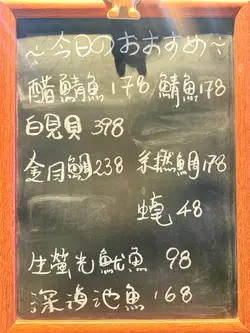 ～今日のおすすめ～
醋鯖魚 178 鯖魚 178
白見貝 398
金目鯛 238 天然鯛 178
蝦 48
生螢光魷魚 98
深海池魚 168